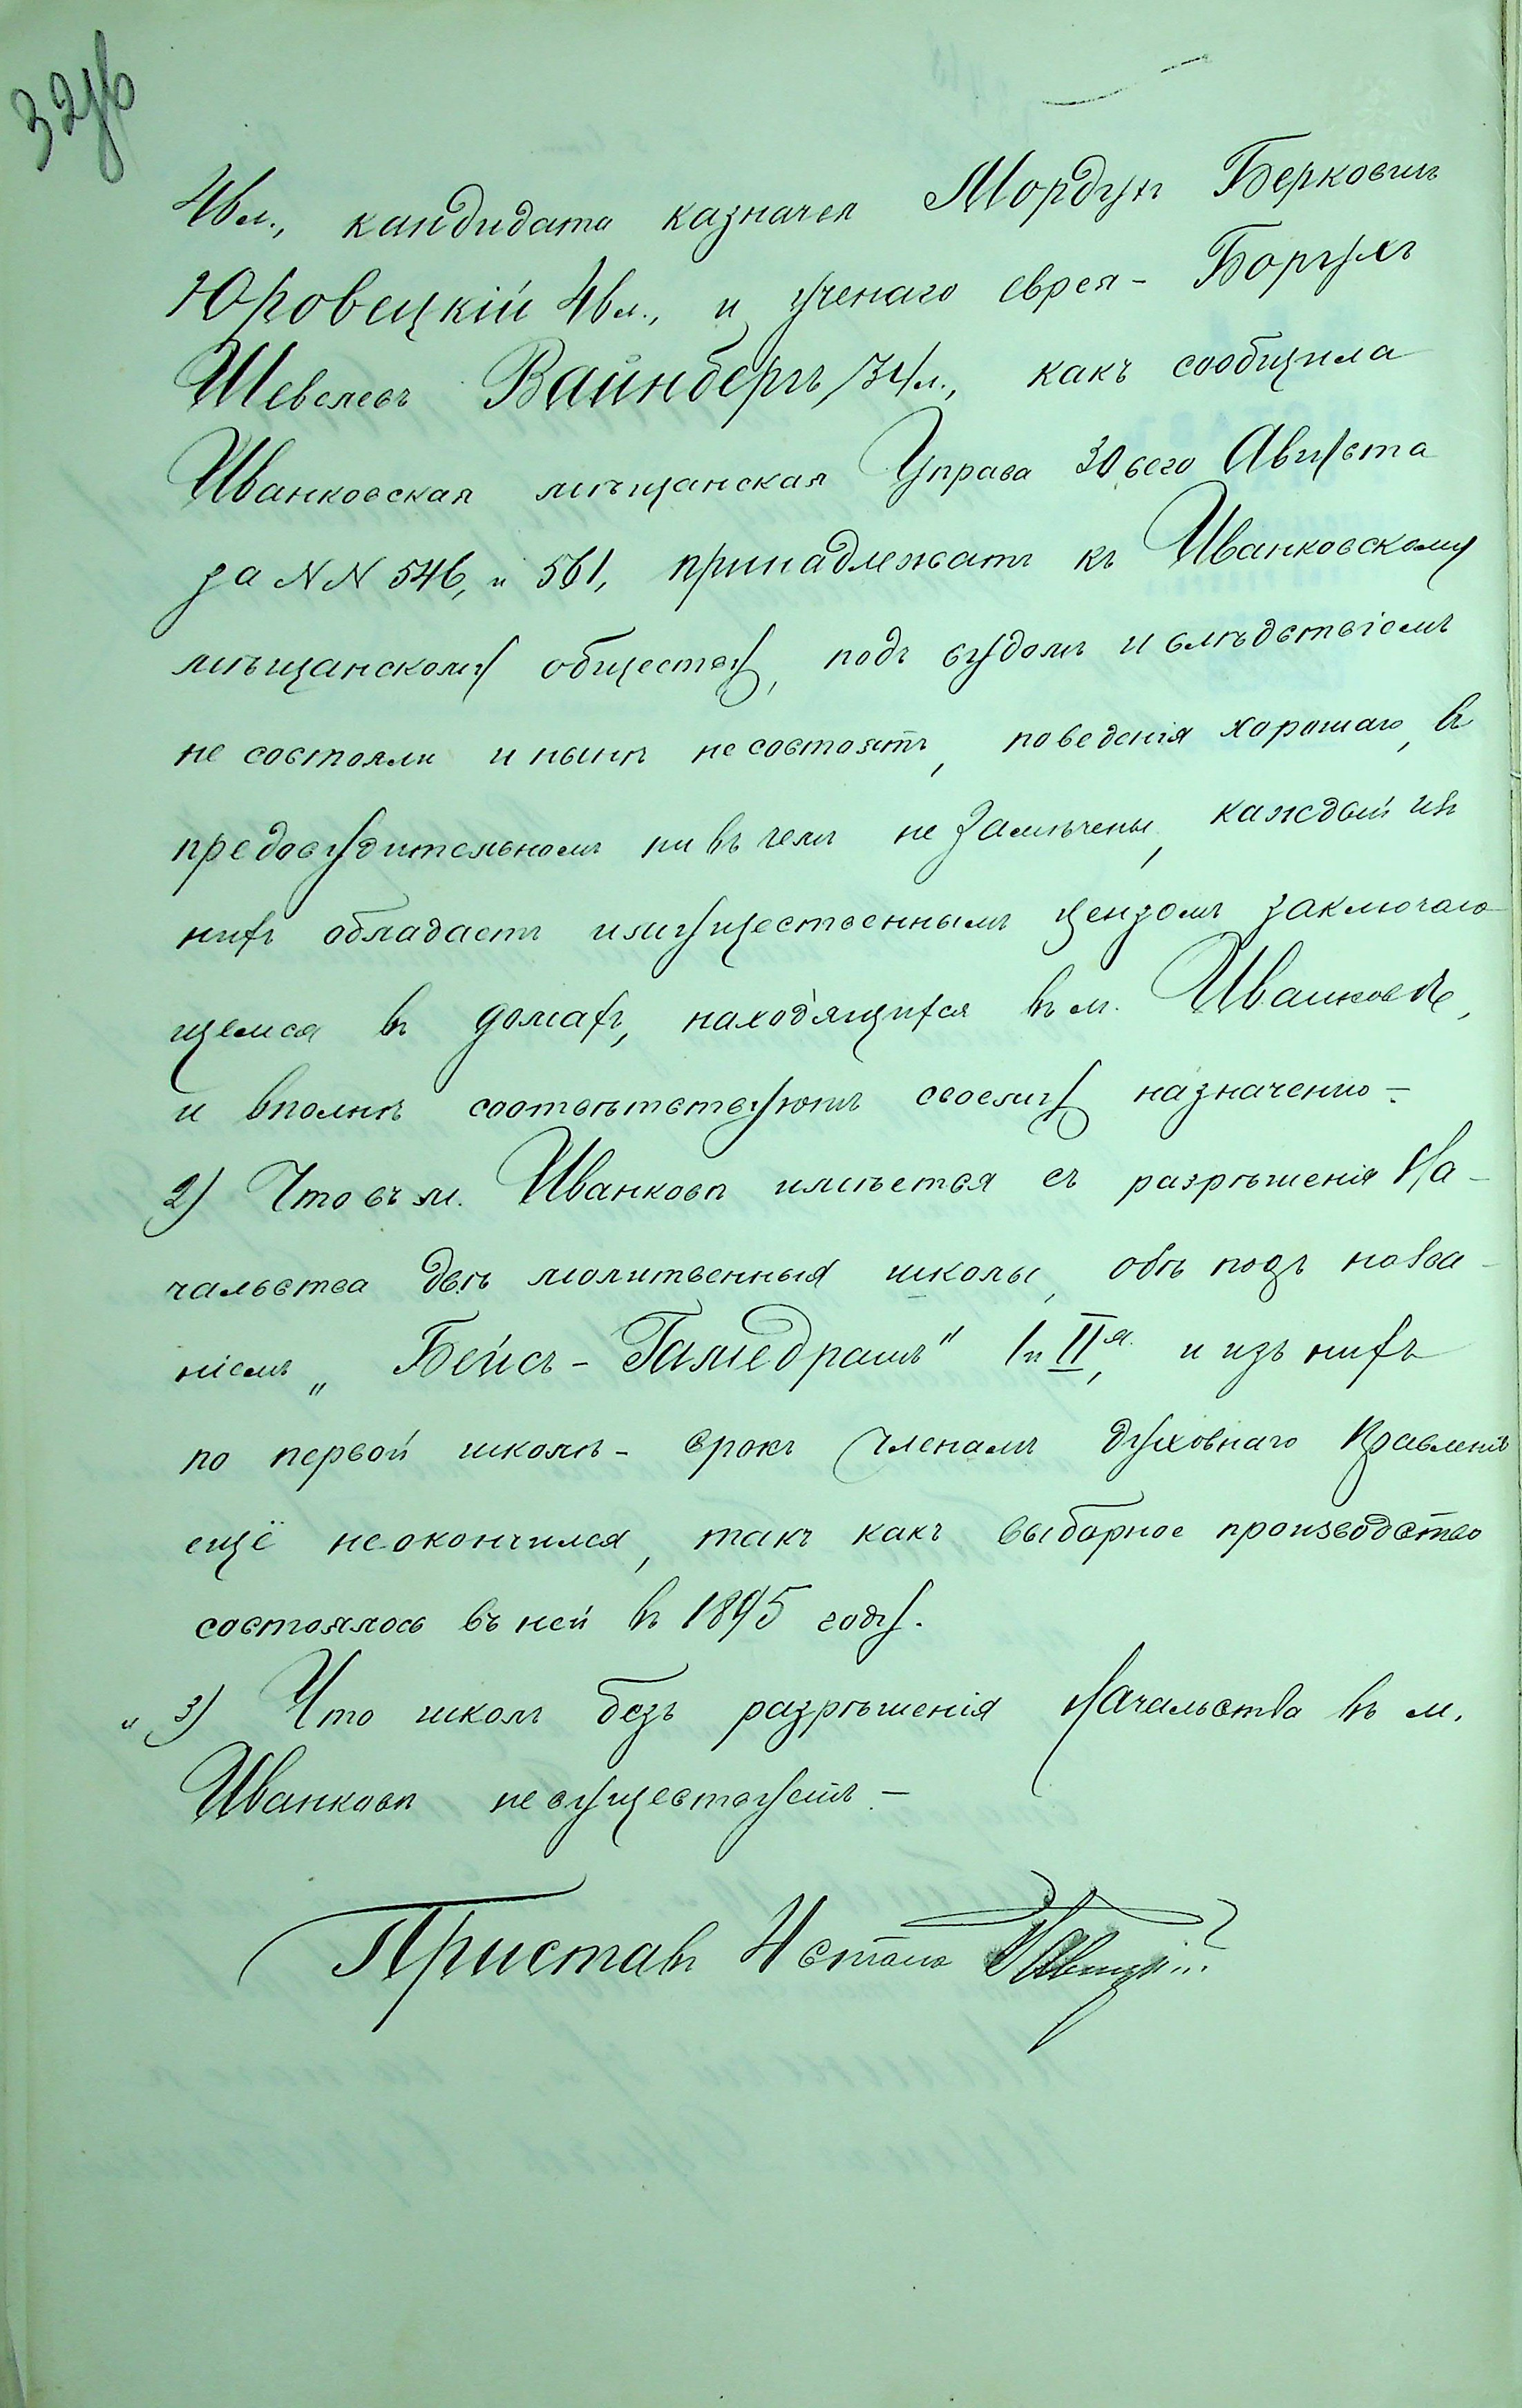 32об
46 л., кандидата казначея Мордух Берковичъ
Юровецкій 46 л., и ученаго еврея - Борухъ
Шевелевъ Вайнбергъ, 34 л., какъ сообщила
Иванковская мѣщанская Управа 30 сего Августа
за NN 546, и 561, принадлежатъ къ Иванковскому
мѣщанскому обществу, подъ судомъ и слѣдствіемъ
не состояли и нынѣ не состоятъ, поведенія хорошаго, въ
предосудительномъ ни въ чемъ не замѣчены, каждый изъ
нихъ обладаетъ имущественнымъ цензомъ заключаю-
щемся въ домахъ, находящихся въ м. Иванковѣ,
и вполнѣ соотвѣтствуютъ своему назначенію -
2) Что въ м. Иванковѣ имѣется съ разрѣшенія На-
чальства двѣ молитвенныя школы, обѣ подъ назва-
ніемъ „Бейсъ-Гамедрашъ" I и II я., и изъ нихъ
по первой школѣ - срокъ членамъ духовнаго Правленія
ещё не окончился, такъ какъ выборное производство
состоялось въ ней въ 1895 году.
и 3) Что школъ безъ разрѣшенія Начальства въ м.
Иванковѣ не существуетъ -
Приставъ 4 стана